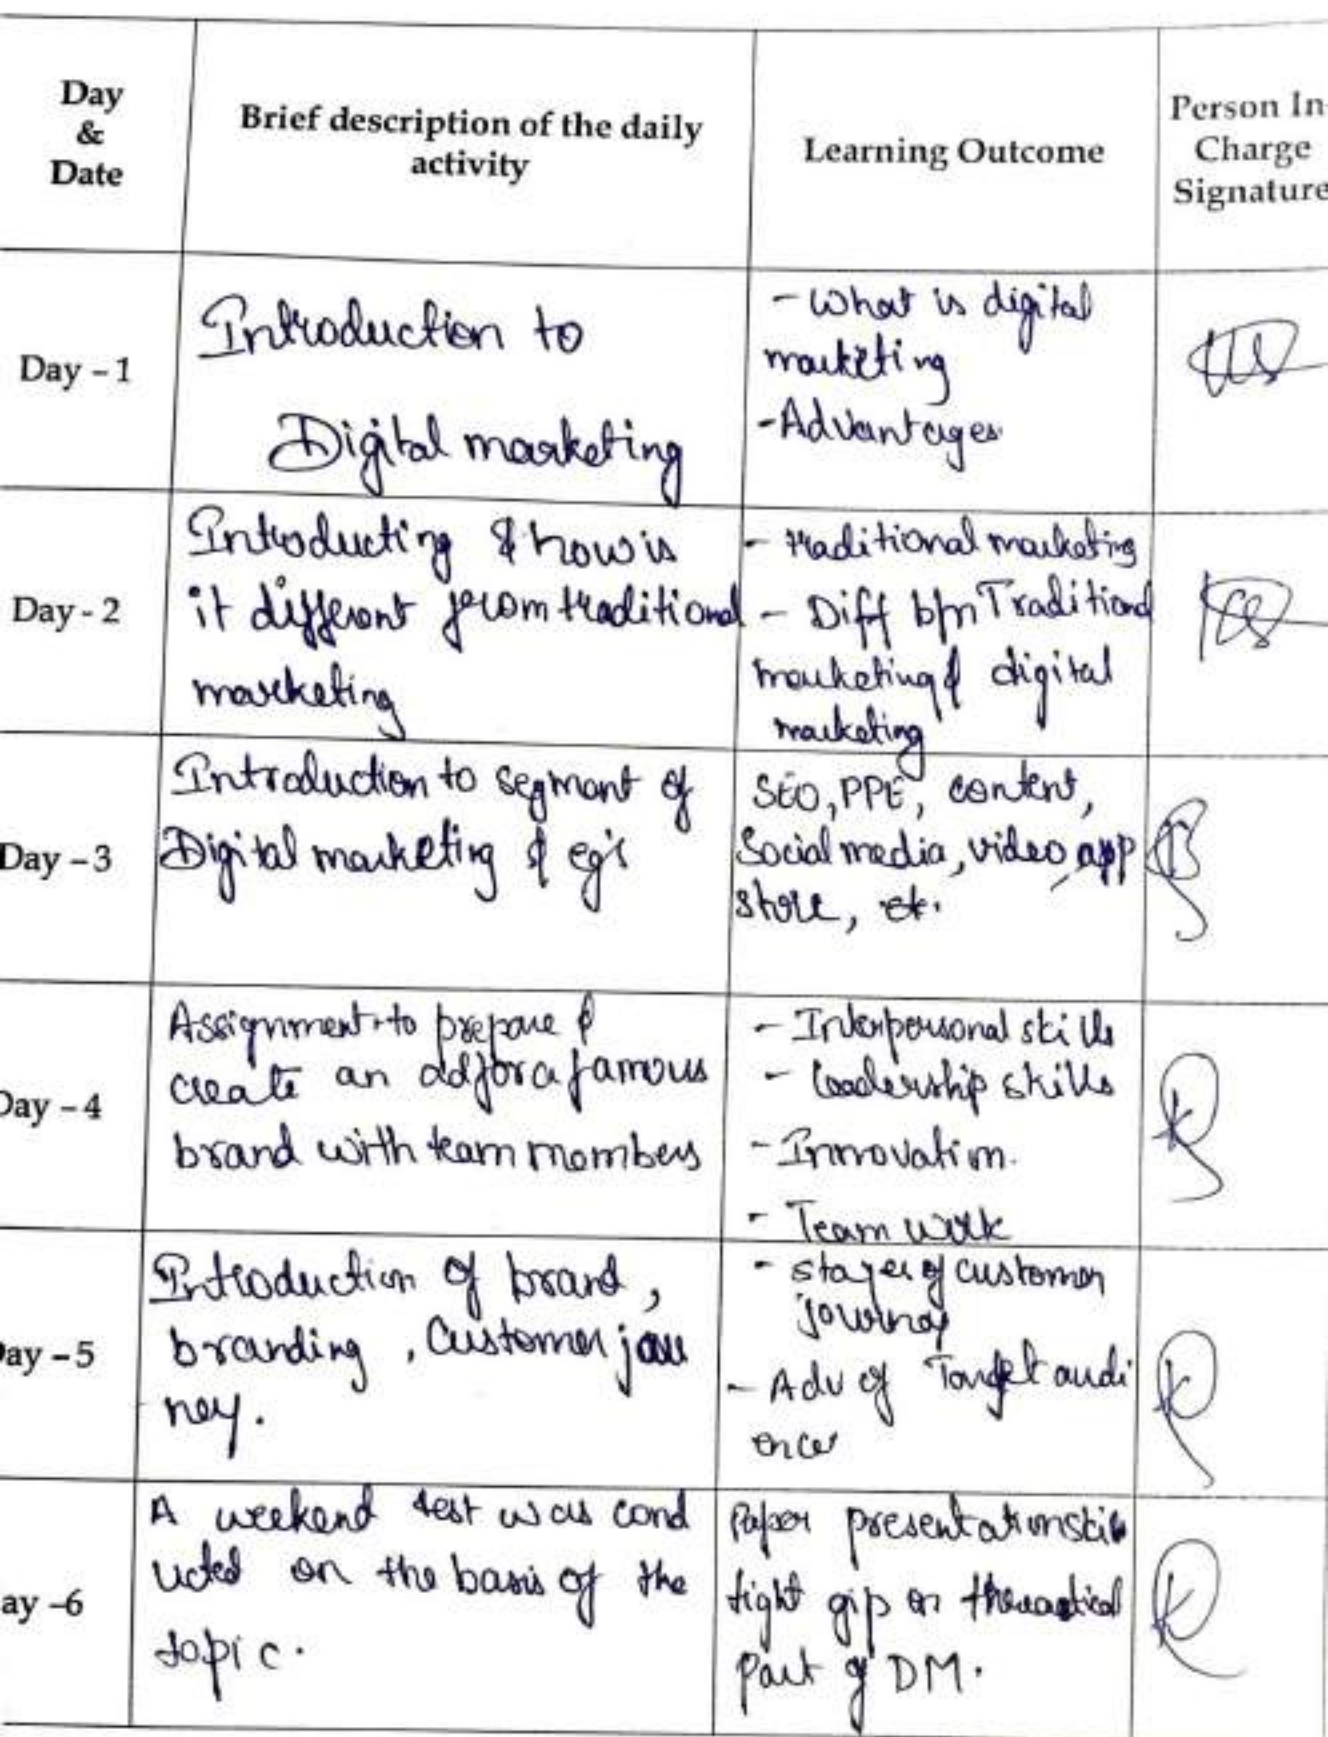 Day
&
Date
Brief description of the daily
activity
Learning Outcome
Person In
Charge
Signature
Day - 1
Introduction to
Digital marketing
- What is digital
marketing
- Advantages
Day - 2
Introducting & how is
it different from traditional
marketing
- traditional marketing
- Diff b/n Traditional
marketing & digital
marketing
Day - 3
Introduction to segmant of
Digital marketing & eg's
SEO, PPE, content,
Social media, video, app
store, etc.
Day - 4
Assignment to prepare &
create an ad for a famous
brand with team members
- Interpersonal skills
- leadership skills
- Innovation.
- Team work
ay - 5
Introduction of brand,
branding, Customer jou
ney.
- stages of customer
journey
- Adv of Target audi
ence
ay -6
A weekend test was cond
ucted on the basis of the
topic.
Paper presentation
tight gip on part
part of DM.